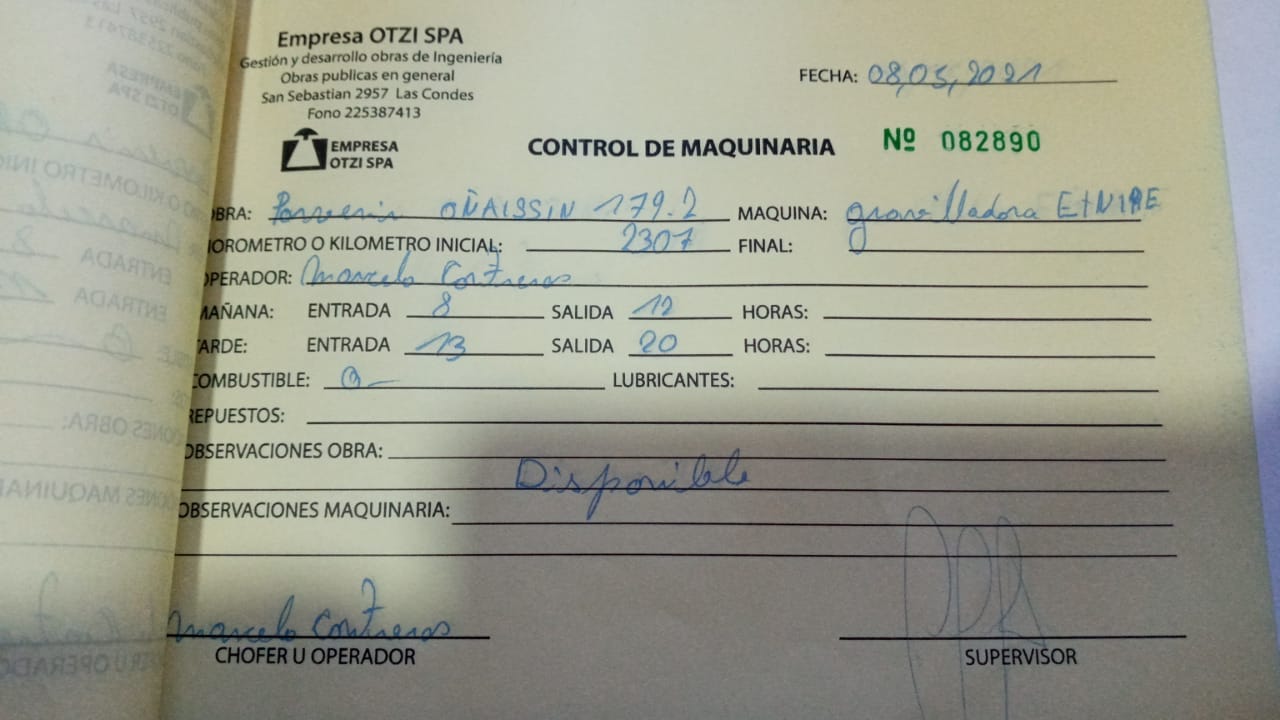 Empresa OTZI SPA
Gestión y desarrollo obras de Ingeniería
Obras publicas en general
San Sebastian 2957 Las Condes
Fono 225387413
FECHA: 08,05,2021
EMPRESA
OTZI SPA
CONTROL DE MAQUINARIA Nº 082890
OBRA: Porvenir OÑAISSIN 179.2 MAQUINA: gravilladora
HOROMETRO O KILOMETRO INICIAL: 2307 FINAL:
OPERADOR: Marcelo Contreras
MAÑANA: ENTRADA 8 SALIDA 12 HORAS:
TARDE: ENTRADA 13 SALIDA 20 HORAS:
COMBUSTIBLE: 0- LUBRICANTES:
REPUESTOS:
OBSERVACIONES OBRA:
Disponible
OBSERVACIONES MAQUINARIA:
Marcelo Contreras
CHOFER U OPERADOR SUPERVISOR